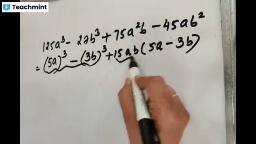 Teachmint
125a³ - 27b³ + 75a²b - 45ab²
= (5a)³ - (3b)³ + 15ab(5a - 3b)